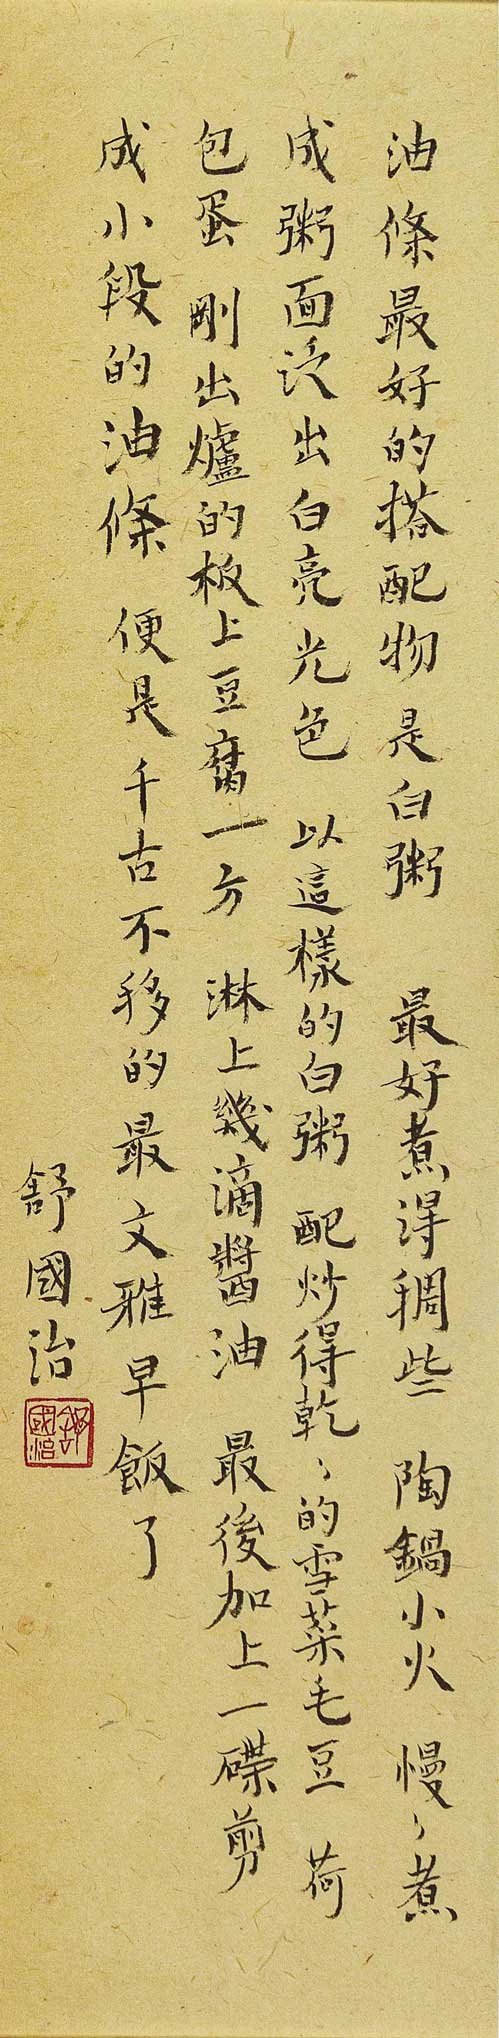 油條最好的搭配物 是白粥 最好煮得稠些 陶鍋小火 慢〻煮
成粥面泛出白亮光色 以這樣的白粥 配炒得乾〻的雪菜毛豆 荷
包蛋 剛出爐的板上豆腐一方 淋上幾滴醬油 最後加上一碟剪
成小段的油條 便是千古不移的最文雅早飯了
舒國治
舒國治